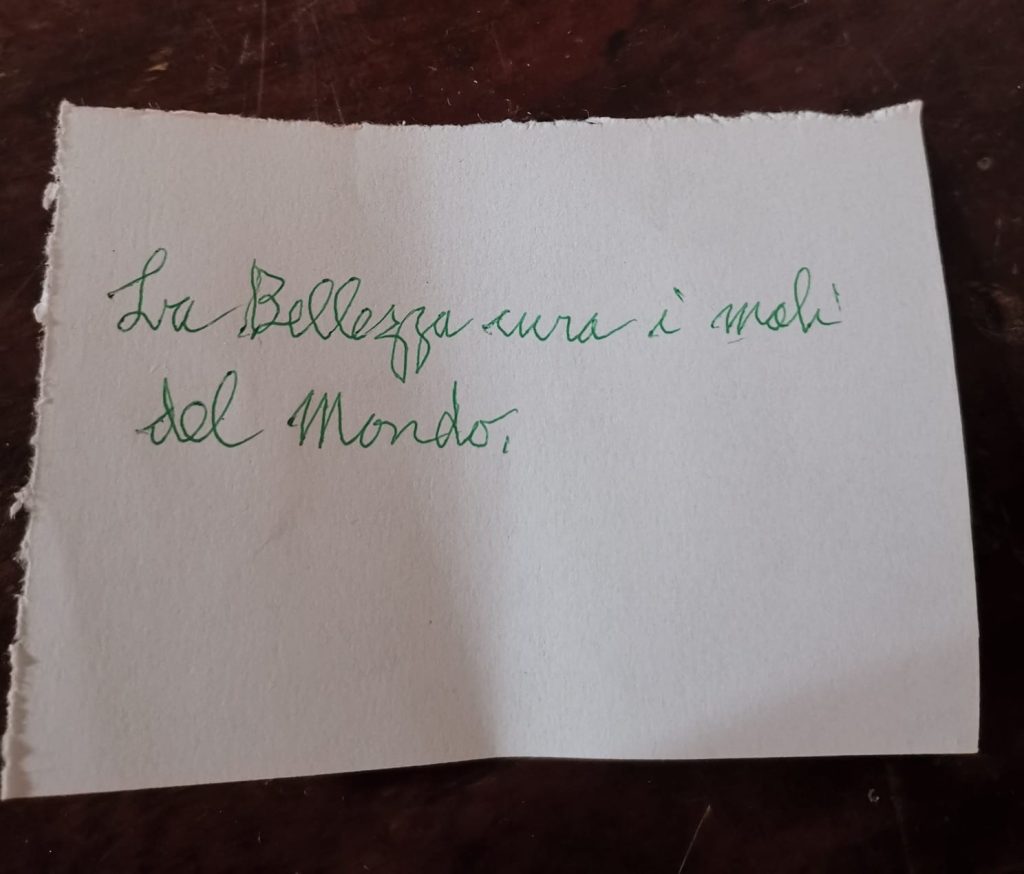 La Bellezza cura i mali
del Mondo.